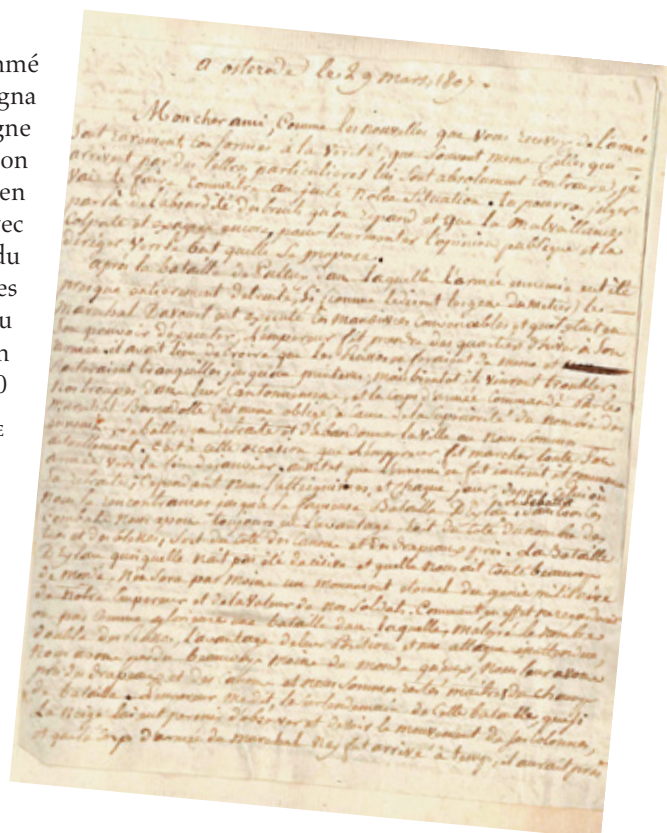 mmé
igna
igne
on
en
vec
du
es
u
n
0
E
a osterode le 29 mars, 1807.
Mon cher ami, Comme les nouvelles que vous recevez de l'armée
sont rarement conformes à la vérité, que souvent meme celles qui
arrivent par des lettres particulieres lui sont absolument contraires, je
vais te faire connaitre au juste notre situation. tu pourras juger
par là de l'absurdité des bruits qu'on repand et que la Malveillance
colporte et exagere encore, pour tourmenter l'opinion publique et la
diriger vers le but quelle se propose.
après la bataille de dans laquelle l'armée ennemie eut été
presque entierement detruite, Si (comme disent les gens du metier) le
Marechal Davout eut executé les manœuvres convenables, et qu'il etait en
son pouvoir d'executer, l'empereur fit prendre des quartiers d'hiver à Son
armée. il avait lieu de croire que les Russes en feraient de meme et
resteraient tranquilles jusqu'au printems, mais bientot ils vinrent troubler
nos troupes dans leurs Cantonnements, et le corps d'armée commandé par le
Marechal Bernadotte fut meme obligé
et d'abandonner la ville ou nous sommes
actuellement. C'est à cette occasion que l'Empereur fit marcher toute Son
armée vers la fin de janvier. aussitot que l'ennemi en fut instruit il commença
sa retraite; Cependant nous l'atteignimes, et chaque jour,
nous le rencontrames jusqu'à la fameuse Bataille D'Eylau,
nous avons toujours eu l'avantage soit du coté du nombre des
et des blessés, soit du coté des canons et des drapeaux pris. La Bataille
D'Eylau quoiqu'elle n'ait pas été decisive et quelle nous ait couté beaucoup
de monde, n'en sera pas moins un monument eternel du genie militaire
de notre Empereur, et de la valeur de nos Soldats. Comment en effet ne regarder
pas comme glorieuse une bataille dans laquelle, malgré le nombre
double des l'avantage de leur Position et une attaque inattendue,
nous avons perdu beaucoup moins de monde qu'eux, nous leur avons
pris des drapeaux et des canons et nous sommes restés maitres du champ
de bataille. l'empereur a dit, le lendemain de cette bataille, que si
la neige lui eut permis d'observer et de voir le mouvement de ses colonnes,
et que le Corps d'armée du Marechal Ney fut arrivé à temps, il aurait pris